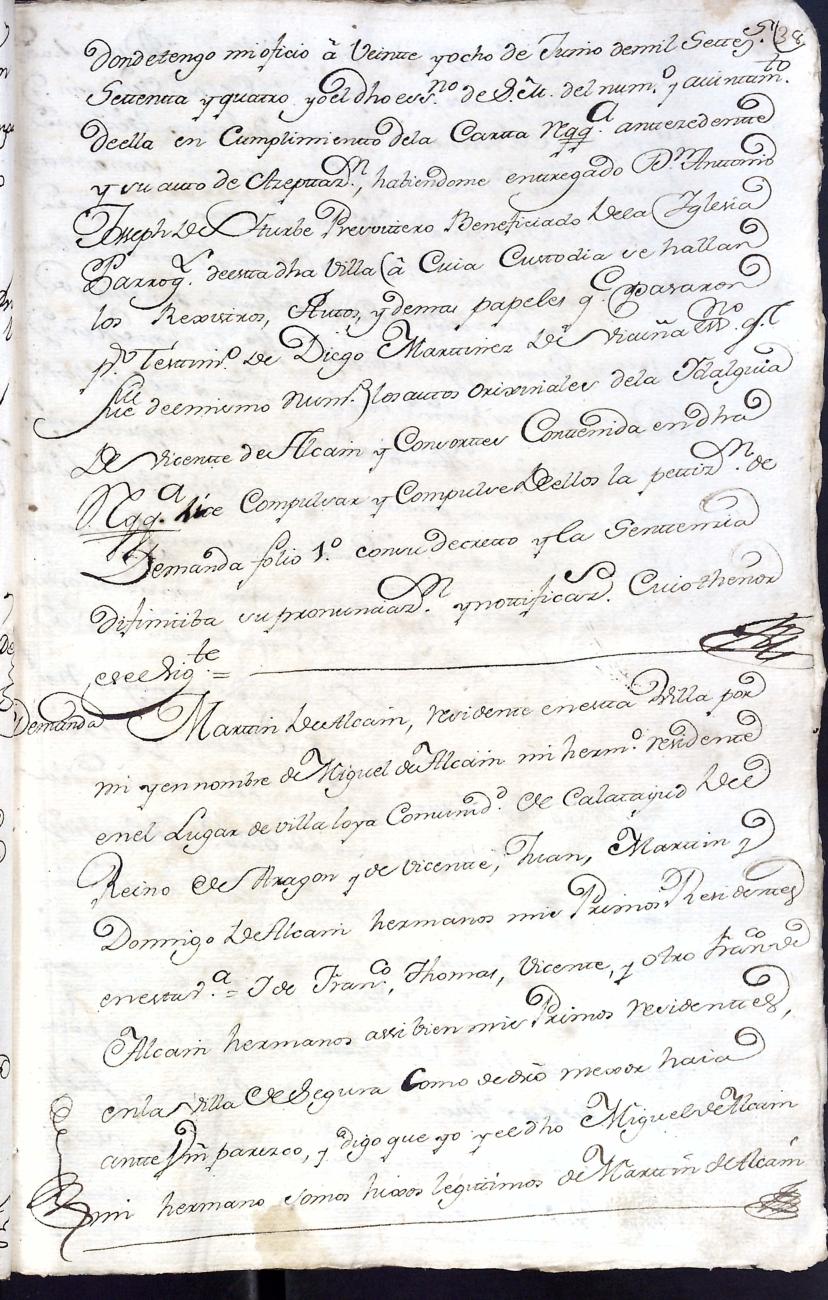 38
donde tengo mi oficio â Veinte y ocho de Junio de mil Settez.s
Settenta y quatro, yo el dho ess.no de S.M. del num.o y aiuntam.to
de ella en Cumplimiento de la Cartta Rqq.a antezedente
y su auto de Azepttaz.n, habiendome entregado D.n Antonio
Joseph de Yturbe Presvitero Beneficiado de la Iglesia
Parroq.l de esta dha Villa (â Cuia Custodia se hallan
los Rexistros, Autos, y demas papeles q.e pasaron
p.r Testim.o de Diego Martinez de Vicuña ess.no q.e
fue del mismo Num.o) los autos orixinales de la Idalguia
de Vicente de Alcain y Consortes Contenida en dha
Rqq.a hice Compulsar y Compulse de ellos la petiz.n de
Demanda folio 1.o con su decreto y la Sentencia
difinitiba su pronunciaz.n y nottificaz.n Cuio thenor
es el sig.te =
Demanda Martin de Alcain, residente en esta Villa por
mi y en nombre de Miguel de Alcain mi herm.o residente
en el Lugar de villa loya Comunid.d de Calatayud de el
Reino de Aragon y de Vicente, Juan, Martin y
Domingo de Alcain hermanos mis Primos Residentes
en esta v.a = I de Fran.co, Thomas, Vicente, y otro Fran.co de
Alcain hermanos assi bien mis Primos residentes,
en la Villa de Segura Como de dro mexor haia
ante Vm parezco, y digo que yo y el dho Miguel de Alcain
mi hermano somos hixos legitimos de Martin de Alcain